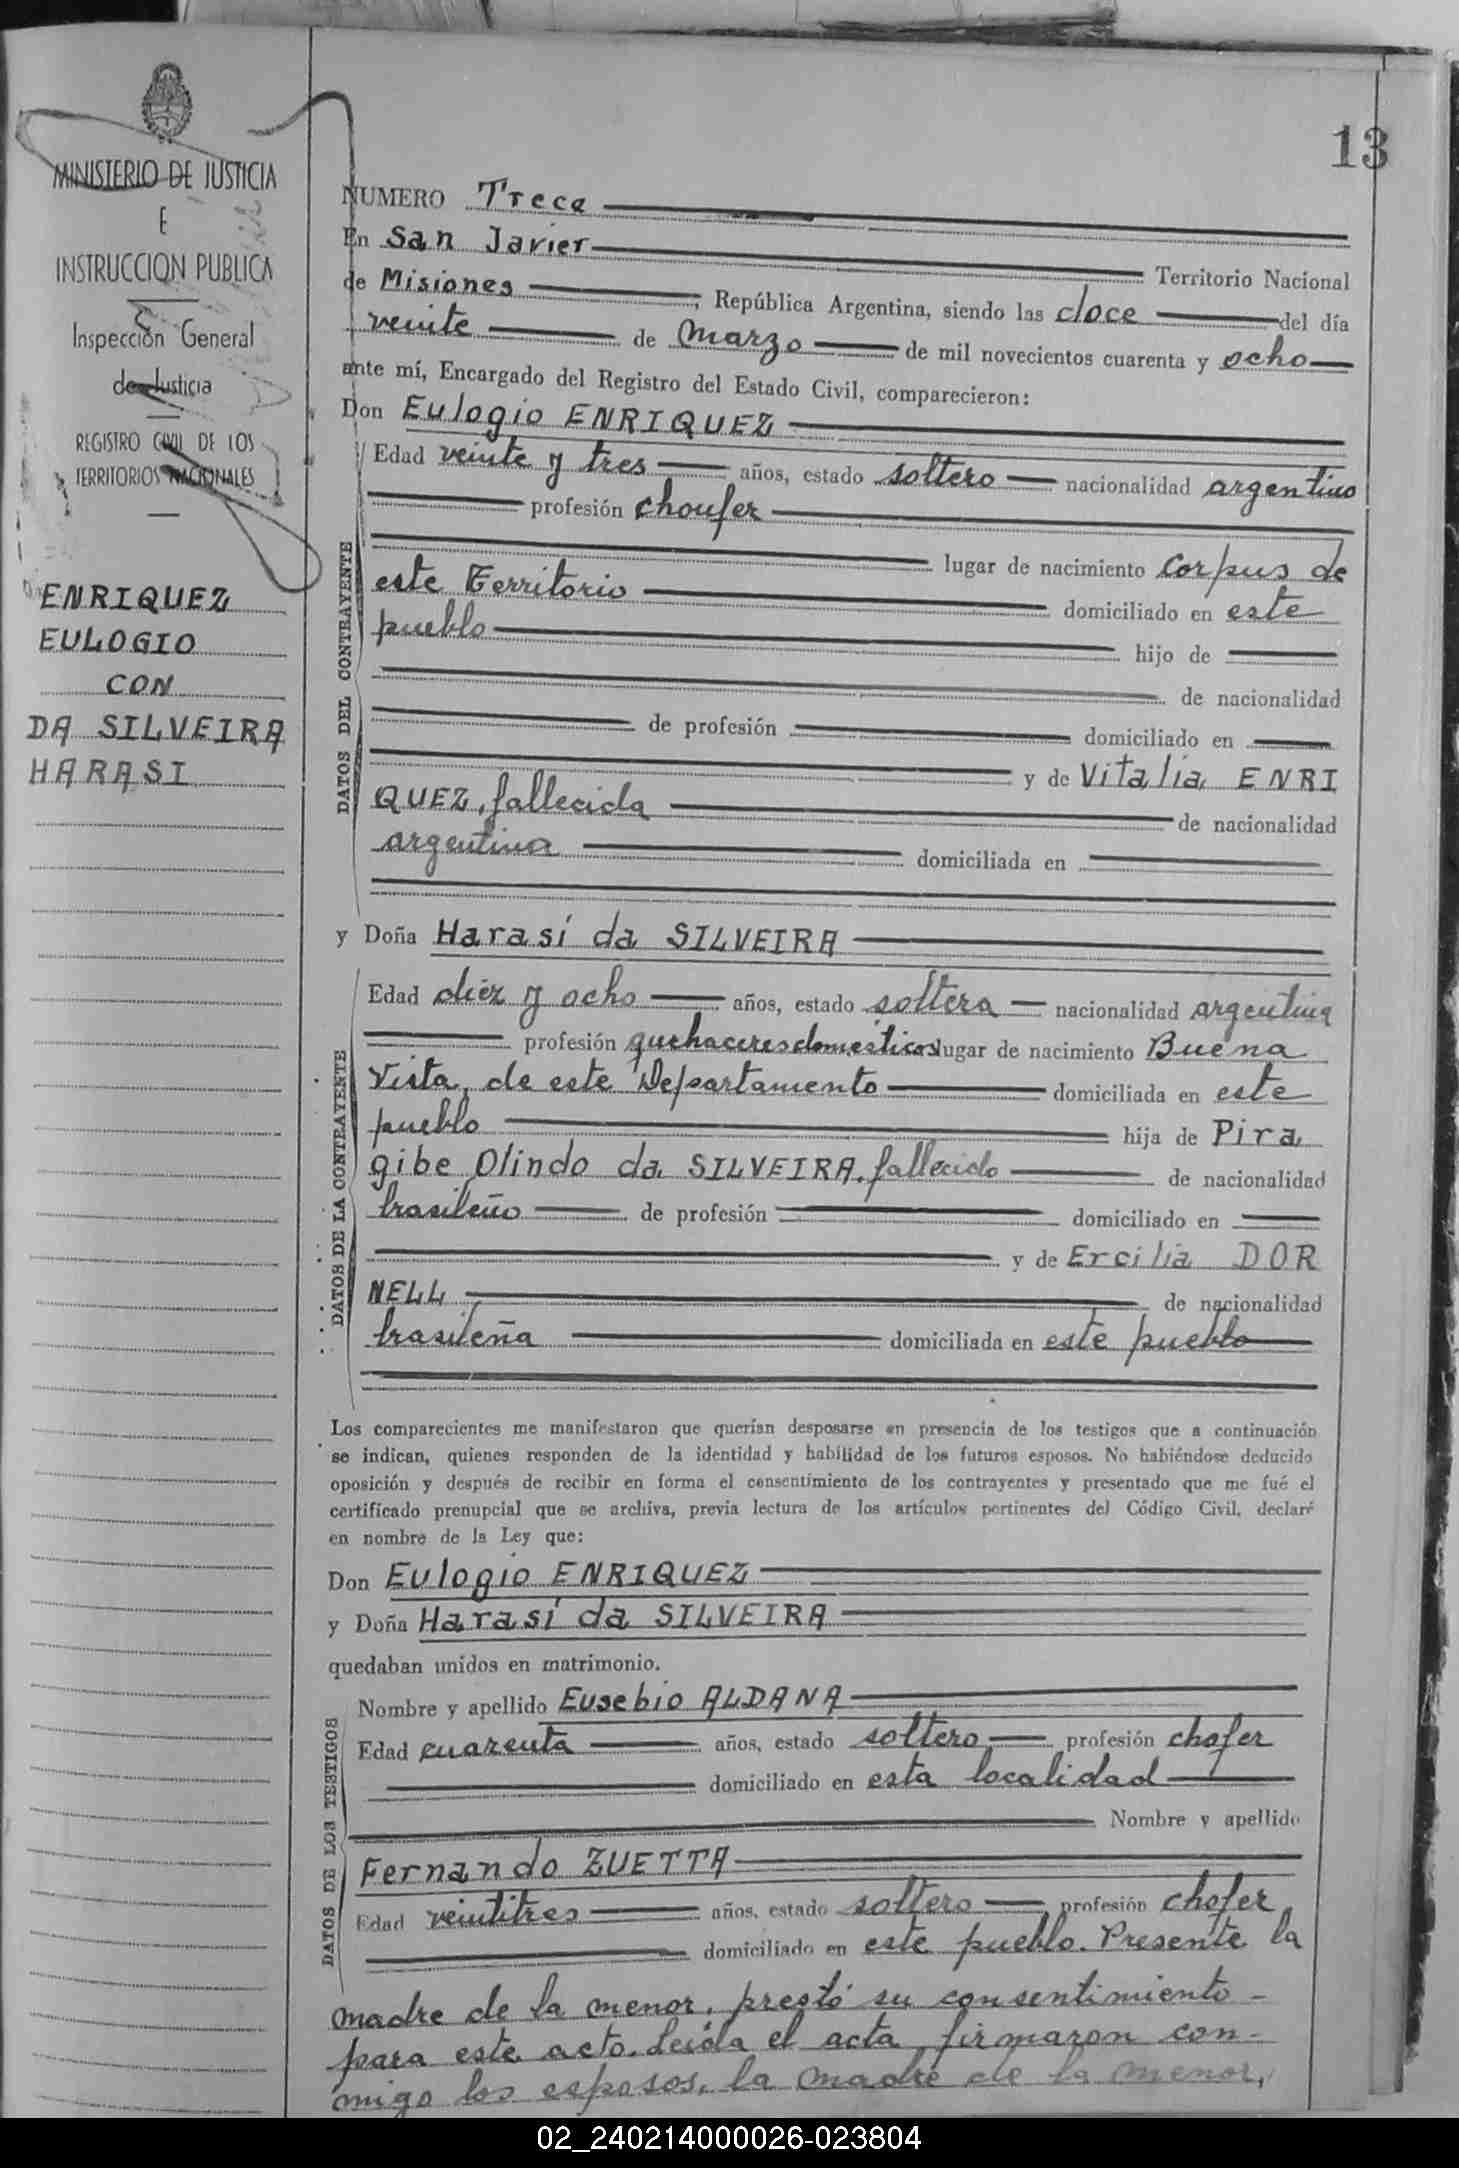 13
MINISTERIO DE JUSTICIA
E
INSTRUCCION PUBLICA
Inspección General
de Justicia
REGISTRO CIVIL DE LOS
TERRITORIOS NACIONALES
ENRIQUEZ
EULOGIO
CON
DA SILVEIRA
HARASI
NUMERO Trece
En San Javier Territorio Nacional
de Misiones, República Argentina, siendo las doce del día
veinte de Marzo de mil novecientos cuarenta y ocho
ante mí, Encargado del Registro del Estado Civil, comparecieron:
Don Eulogio ENRIQUEZ
DATOS DEL CONTRAYENTE
Edad veinte y tres años, estado soltero nacionalidad argentino
profesión choufer
lugar de nacimiento Corpus de
este Territorio domiciliado en este
pueblo hijo de
de nacionalidad
de profesión domiciliado en
y de Vitalia ENRI
QUEZ, fallecida de nacionalidad
argentina domiciliada en
y Doña Harasí da SILVEIRA
DATOS DE LA CONTRAYENTE
Edad diez y ocho años, estado soltera nacionalidad argentina
profesión quehaceres domésticos lugar de nacimiento Buena
Vista, de este Departamento domiciliada en este
pueblo hija de Pira
gibe Olindo da SILVEIRA, fallecido de nacionalidad
brasileño de profesión domiciliado en
y de Ercilia DOR
NELL de nacionalidad
brasileña domiciliada en este pueblo
Los comparecientes me manifestaron que querían desposarse en presencia de los testigos que a continuación
se indican, quienes responden de la identidad y habilidad de los futuros esposos. No habiéndose deducido
oposición y después de recibir en forma el consentimiento de los contrayentes y presentado que me fué el
certificado prenupcial que se archiva, previa lectura de los artículos pertinentes del Código Civil, declaré
en nombre de la Ley que:
Don Eulogio ENRIQUEZ
y Doña Harasí da SILVEIRA
quedaban unidos en matrimonio.
DATOS DE LOS TESTIGOS
Nombre y apellido Eusebio ALDANA
Edad cuarenta años, estado soltero profesión chofer
domiciliado en esta localidad
Nombre y apellido
Fernando ZUETTA
Edad veintitres años, estado soltero profesión chofer
domiciliado en este pueblo. Presente la
madre de la menor, prestó su consentimiento
para este acto. Leída el acta firmaron con-
migo los esposos, la madre de la menor,
02_240214000026-023804